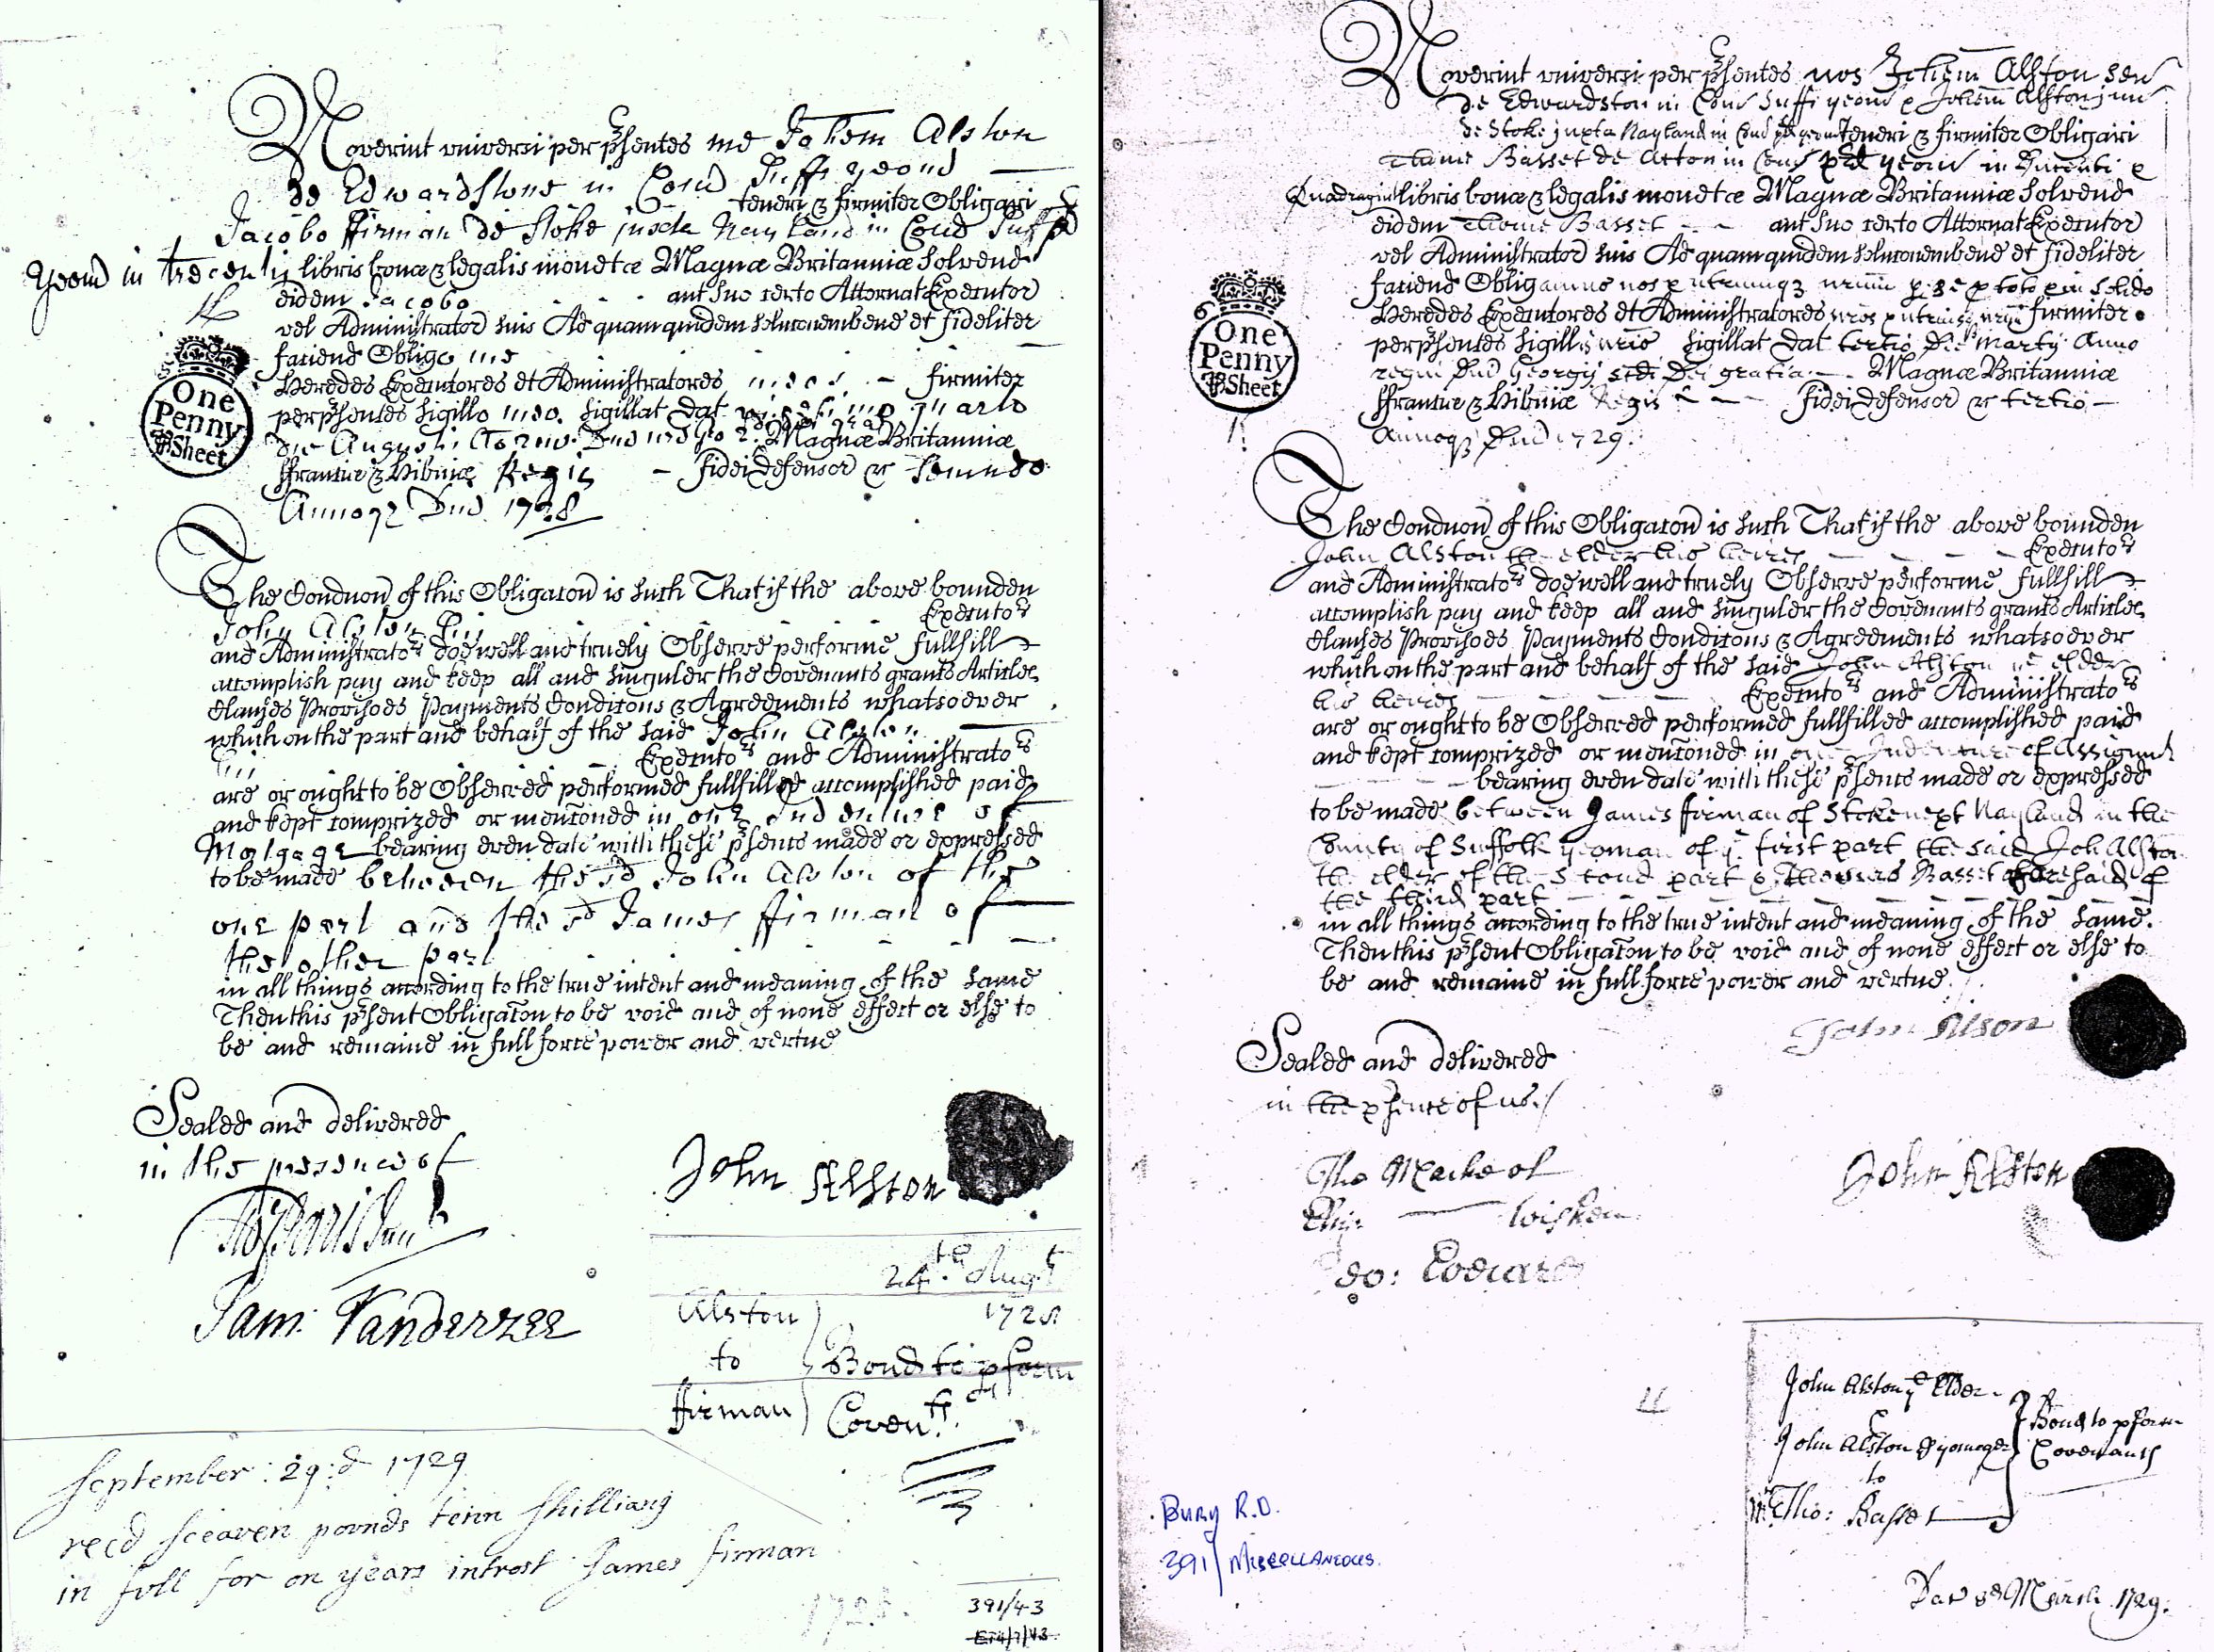 Noverint universi per p̄sentes me Johem Alston
de Edwardstone in Com̄ Suff yeom̄
teneri & firmiter Obligari
Jacobo Firman de Stoke juxta Nayland in Com̄ Suff p̄d
yeom̄ in trecentis libris bonæ & legalis monetæ Magnæ Britanniæ Solvend
eidem Jacobo aut suo certo Attornat Executor
vel Administrator suis Ad quam quidem solucoñem bene et fideliter
faciend Obligo me
Heredes Executores et Administratores meos firmiter
per p̄sentes Sigillo meo Sigillat Dat vicesimo quarto
die Augusti Magnæ Britanniæ
ffranciæ & Hibniæ Regis fidei defensor &c secundo
Annoq Dni 1728
One
Penny
℘ Sheet
The Condicon of this Obligacon is such That if the above bounden
John Alston his Executors
and Administrators doe well and truely Observe performe fullfill
accomplish pay and keep all and singuler the Covenants grants Articles
Clauses Provisoes Payments Condicons & Agreements whatsoever
which on the part and behalf of the said John Alston
his Executors and Administrators
are or ought to be Observed performed fullfilled accomplished paid
and kept comprized or mencõned in one Indenture of
Mortgage bearing even date with these p̄sents made or expressed
to be made between the sd John Alston of the
one part and the sd James ffirman of
the other part
in all things according to the true intent and meaning of the same
Then this p̄sent Obligacon to be void and of none effect or else to
be and remaine in full force power and vertue
Sealed and delivered
in the presence of
John Alston
Sam: Vanderzee
24th Augt
1728
Alston
to
ffirman
Bond to pform
Covents
September: 29:d 1729
recd seaven pounds tenn shilliang
in full for on years introst James firman
391/43
Noverint universi per p̄sentes nos Johem Alston sen
de Edwardston in Com Suff yeom & Johem Alston jun
de Stoke juxta Nayland in Com p̄d yeom teneri & firmiter Obligari
Thome Basset de Acton in Com p̄d yeom in Ducenti &
Quadragint libris bonæ & legalis monetæ Magnæ Britanniæ Solvend
eidem Thome Basset aut suo certo Attornat Executor
vel Administrator suis Ad quam quidem solucoñem bene et fideliter
faciend Obligamus nos & utrumq nrum p se p toto & in solido
Heredes Executores et Administratores nros & utriusq nrum firmiter
per p̄sentes Sigillis nris Sigillat Dat tertio die Martij Anno
regni Dni Georgij scdi Dei gratia Magnæ Britanniæ
ffranciæ & Hibniæ Regis fidei defensor &c tertio
Annoq Dni 1729.
One
Penny
℘ Sheet
The Condicon of this Obligacon is such That if the above bounden
John Alston the elder his heires Executors
and Administrators doe well and truely Observe performe fullfill
accomplish pay and keep all and singuler the Covenants grants Articles
Clauses Provisoes Payments Condicons & Agreements whatsoever
which on the part and behalf of the said John Alston ye elder
his heires Executors and Administrators
are or ought to be Observed performed fullfilled accomplished paid
and kept comprized or mencõned in one Indenture of Assignmt
bearing even date with these p̄sents made or expressed
to be made between James firman of Stoke next Nayland in the
County of Suffolk yeoman of ye first part the said John Alston
the elder of the second part & Thomas Basset aforesaid of
the third part
in all things according to the true intent and meaning of the same.
Then this p̄sent Obligacon to be void and of none effect or else to
be and remaine in full force power and vertue.
John Alson
Sealed and delivered
in the p̄sence of us./
The Marke of
Eliz: Wisken
John Alston
Jo: Edwards
John Alston ye Elder
John Alston ye younger
to
Mr Tho: Basset
Bond to pform
Covenants
Dat 3d March 1729.
Bury R.D.
391/ Miscellaneous.